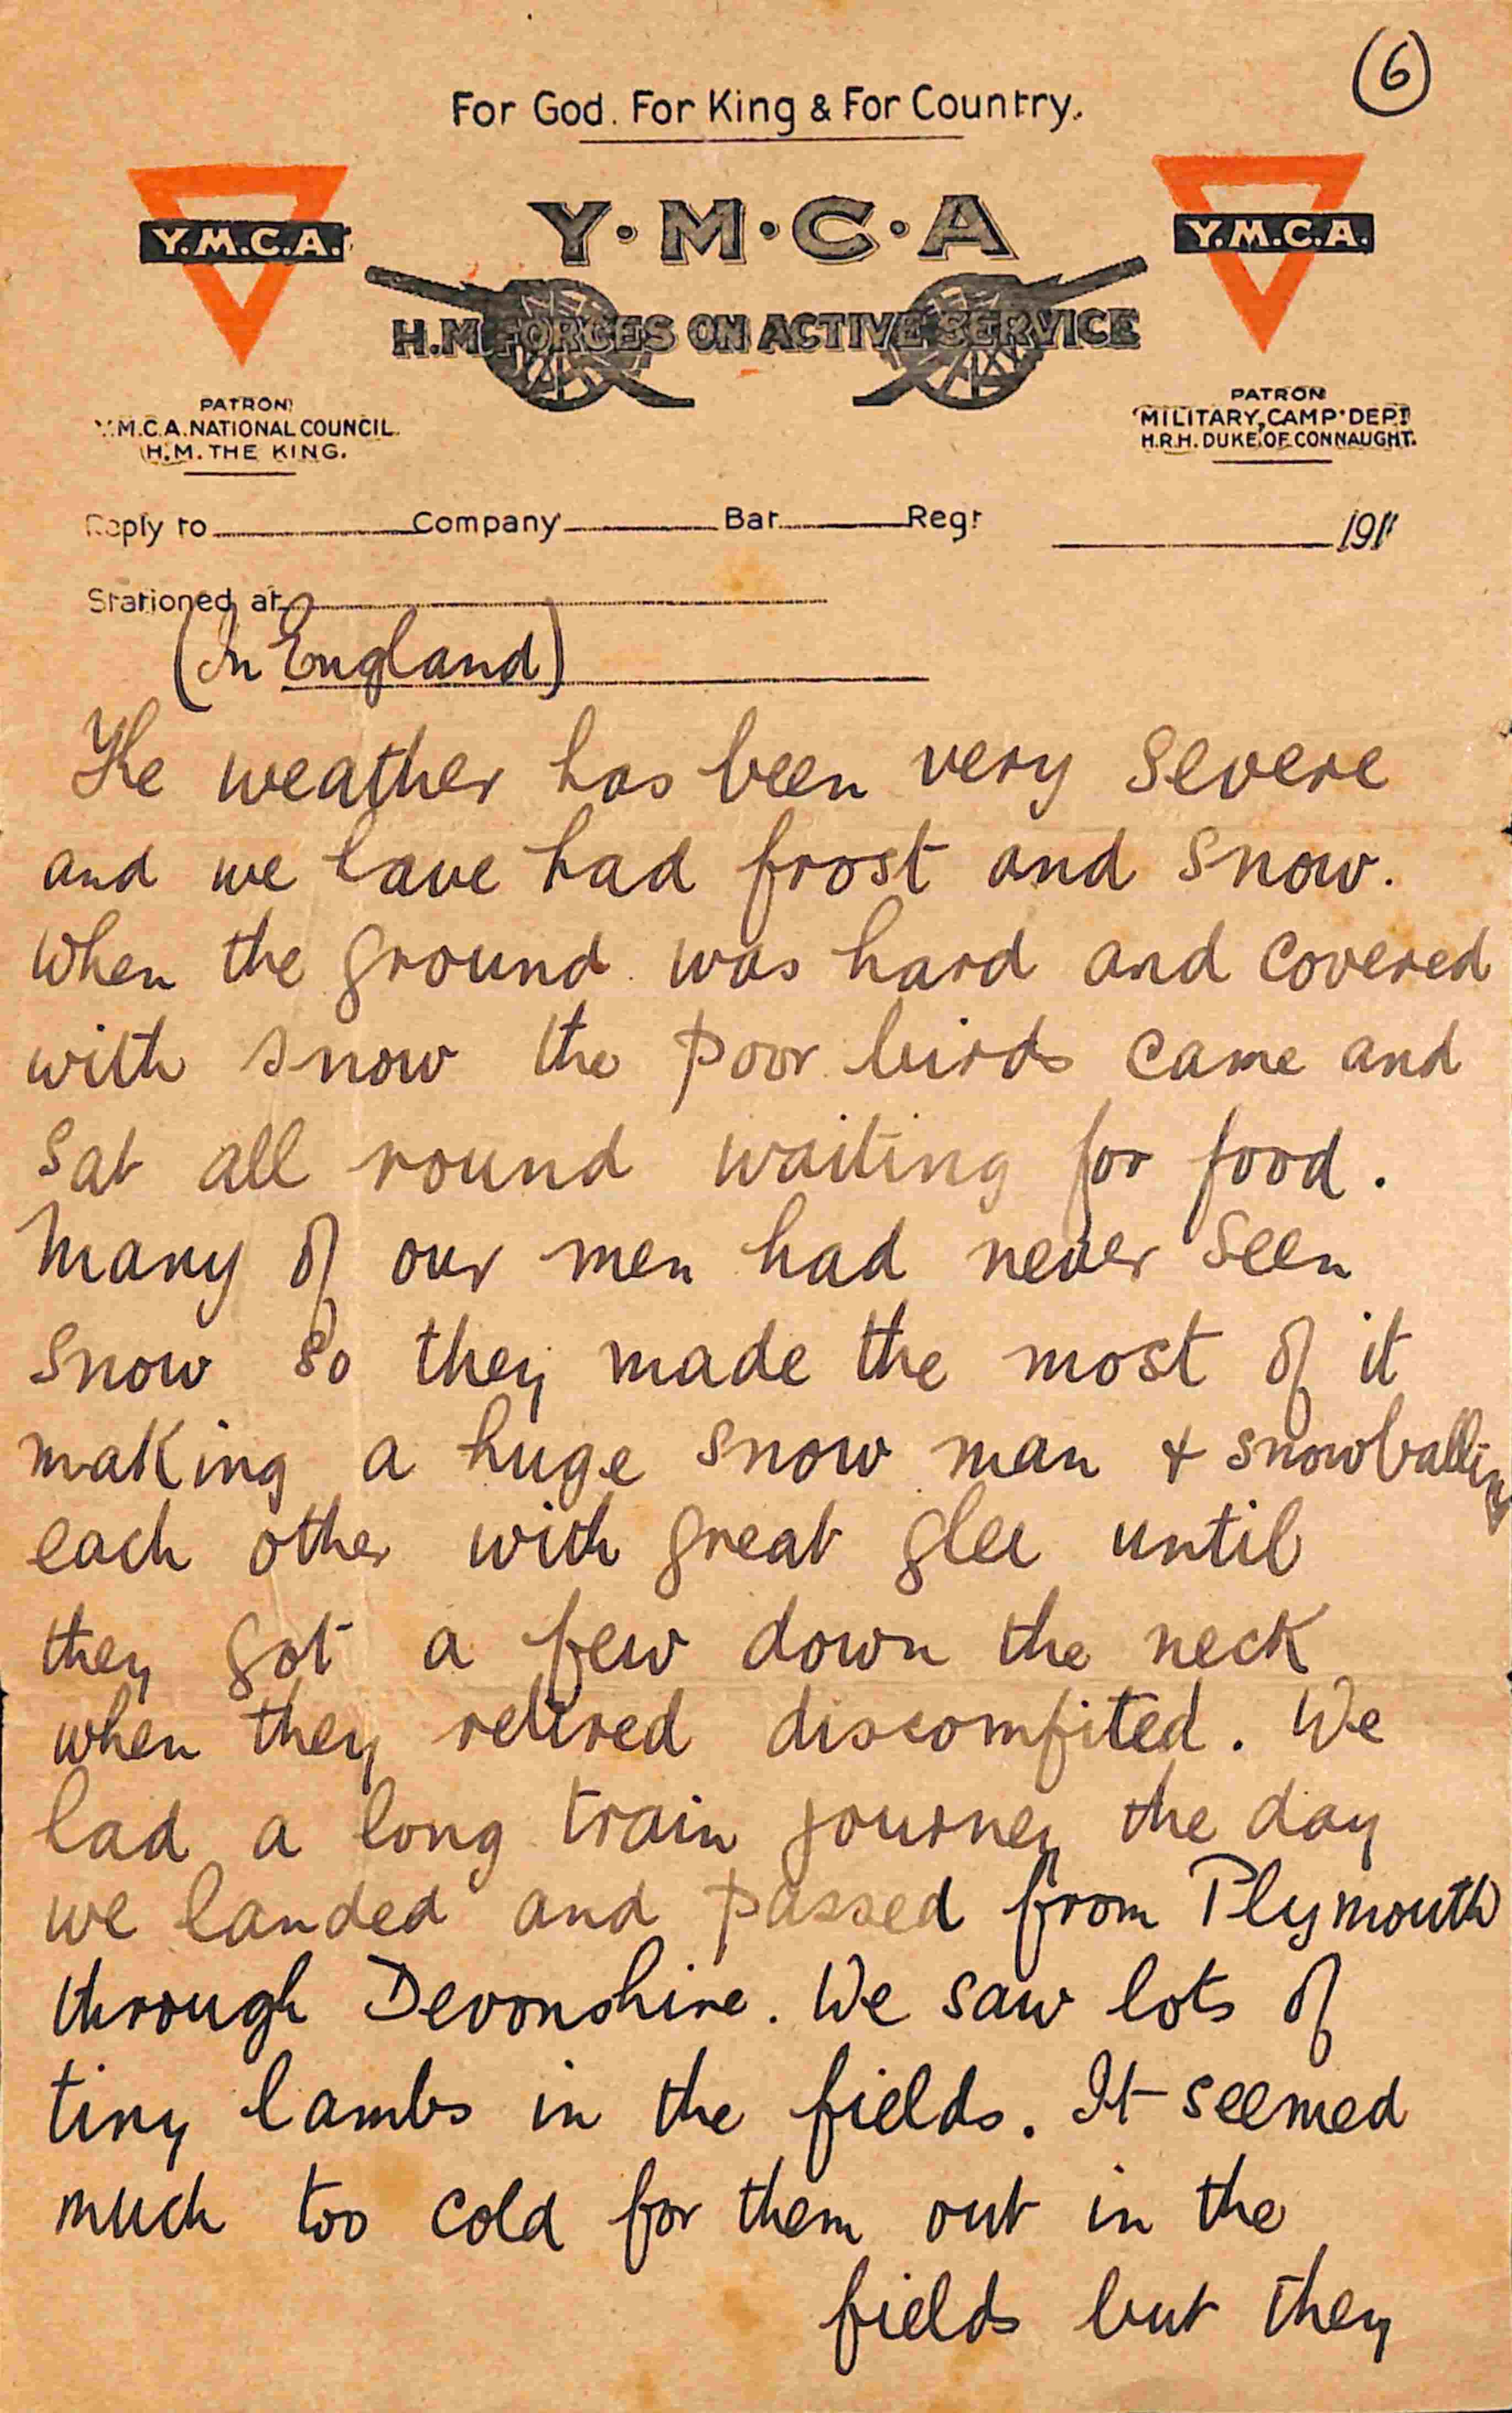 (6)
For God. For King & For Country.
Y.M.C.A.
Y·M·C·A
Y.M.C.A.
H.M. FORCES ON ACTIVE SERVICE
PATRON
Y.M.C.A. NATIONAL COUNCIL.
H.M. THE KING.
PATRON
MILITARY CAMP DEPT
H.R.H. DUKE OF CONNAUGHT.
Reply to Company Bat Regt 191
Stationed at
(In England)
The weather has been very severe
and we have had frost and snow.
When the ground was hard and covered
with snow the poor birds came and
sat all round waiting for food.
Many of our men had never seen
snow so they made the most of it
making a huge snow man & snowballing
each other with great glee until
they got a few down the neck
when they retired discomfited. We
had a long train journey the day
we landed and passed from Plymouth
through Devonshire. We saw lots of
tiny lambs in the fields. It seemed
much too cold for them out in the
fields but they